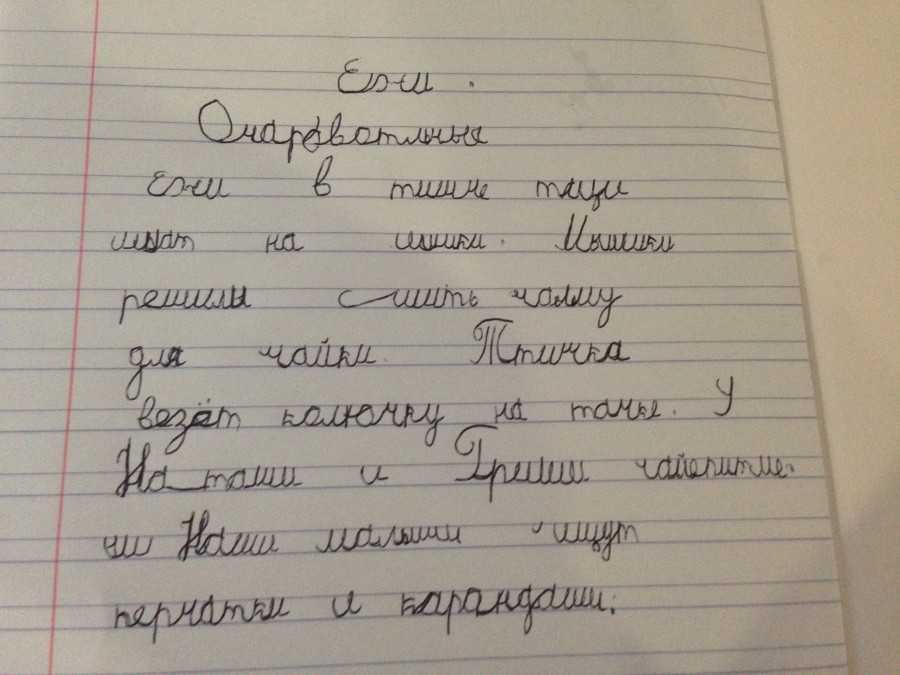 Ежи.
Очаровательные
ежи в тишне тащи
шат на шишки. Мышки
решилы сшить чалму
для чайки. Птичка
везёт колючку на тачке. У
Наташи и Гриши чайепитие.
чи Наши малыши ищут
перчатки и карандаши.